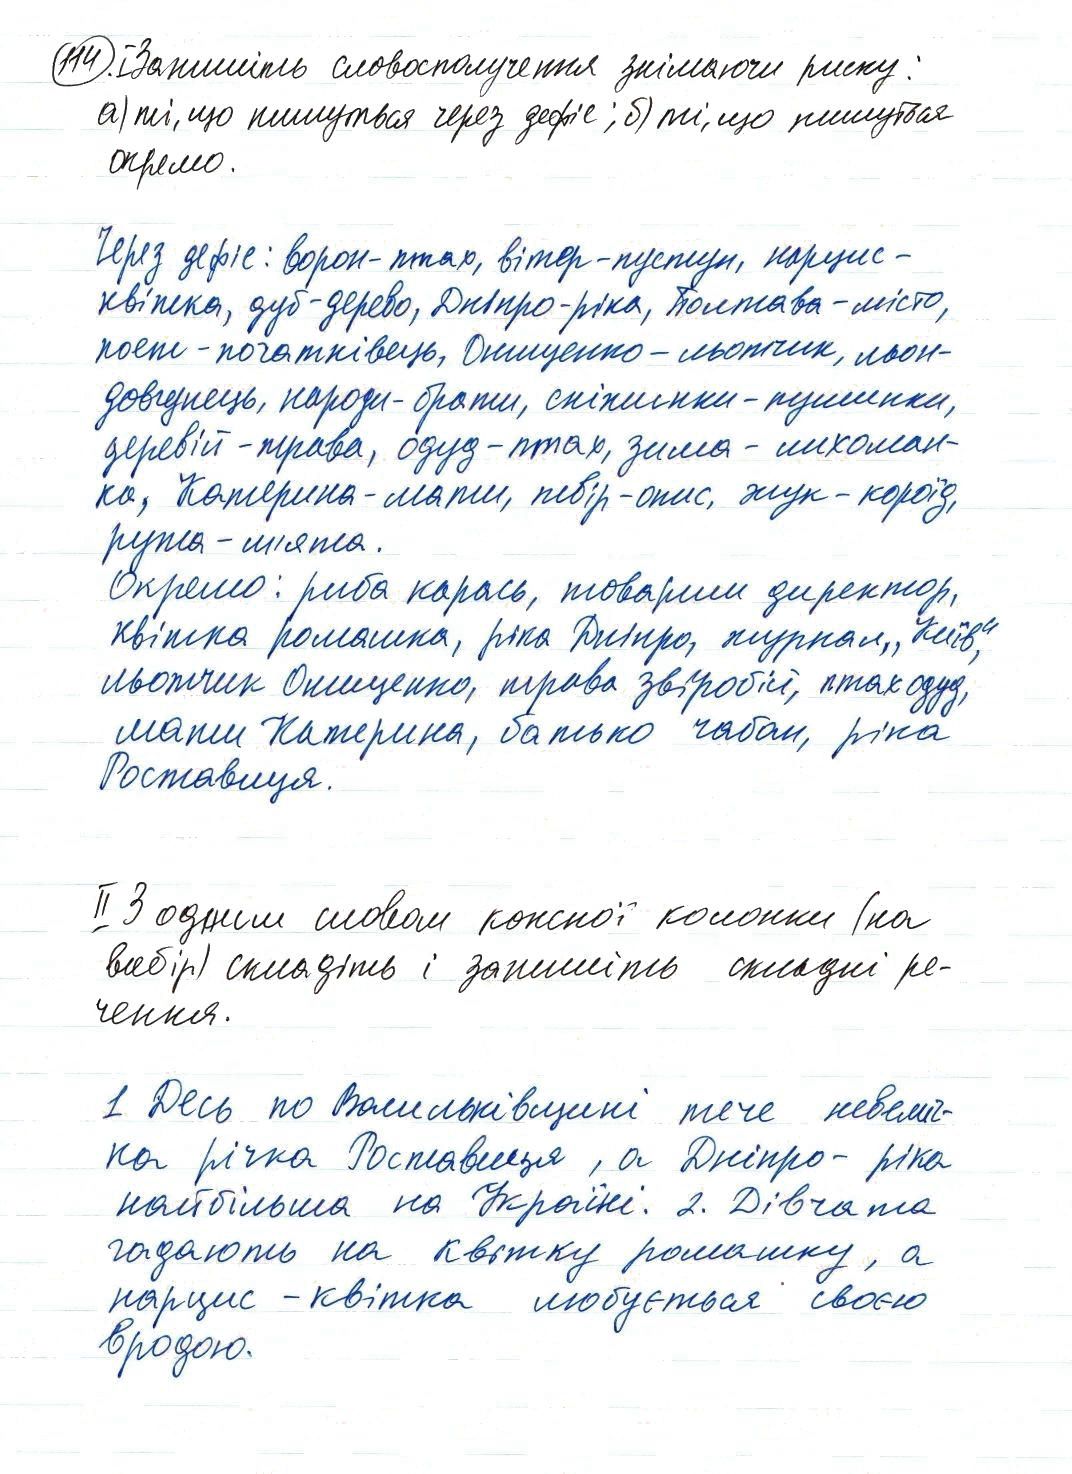 114. I Запишіть словосполучення знімаючи риску:
а) ті, що пишуться через дефіс; б) ті, що пишуться
окремо.
Через дефіс: ворон-птах, вітер-пустун, нарцис-
квітка, дуб-дерево, Дніпро-ріка, Полтава-місто,
поет-початківець, Онищенко-льотчик, льон-
довгунець, народи-брати, сніжинки-пушинки,
деревій-трава, одуд-птах, зима-лихоман-
ка, Катерина-мати, твір-опис, жук-короїд,
рута-мята.
Окремо: риба карась, товариш директор,
квітка ромашка, ріка Дніпро, журнал „Київ“,
льотчик Онищенко, трава звіробій, птах одуд,
мати Катерина, батько чабан, ріка
Роставиця.
II З одним словом кожної колонки (на
вибір) складіть і запишіть складні ре-
чення.
1 Десь по Васильківщині тече невели-
ка річка Роставиця, а Дніпро-ріка
найбільша на Україні. 2. Дівчата
гадають на квітку ромашку, а
нарцис-квітка любується своєю
вродою.